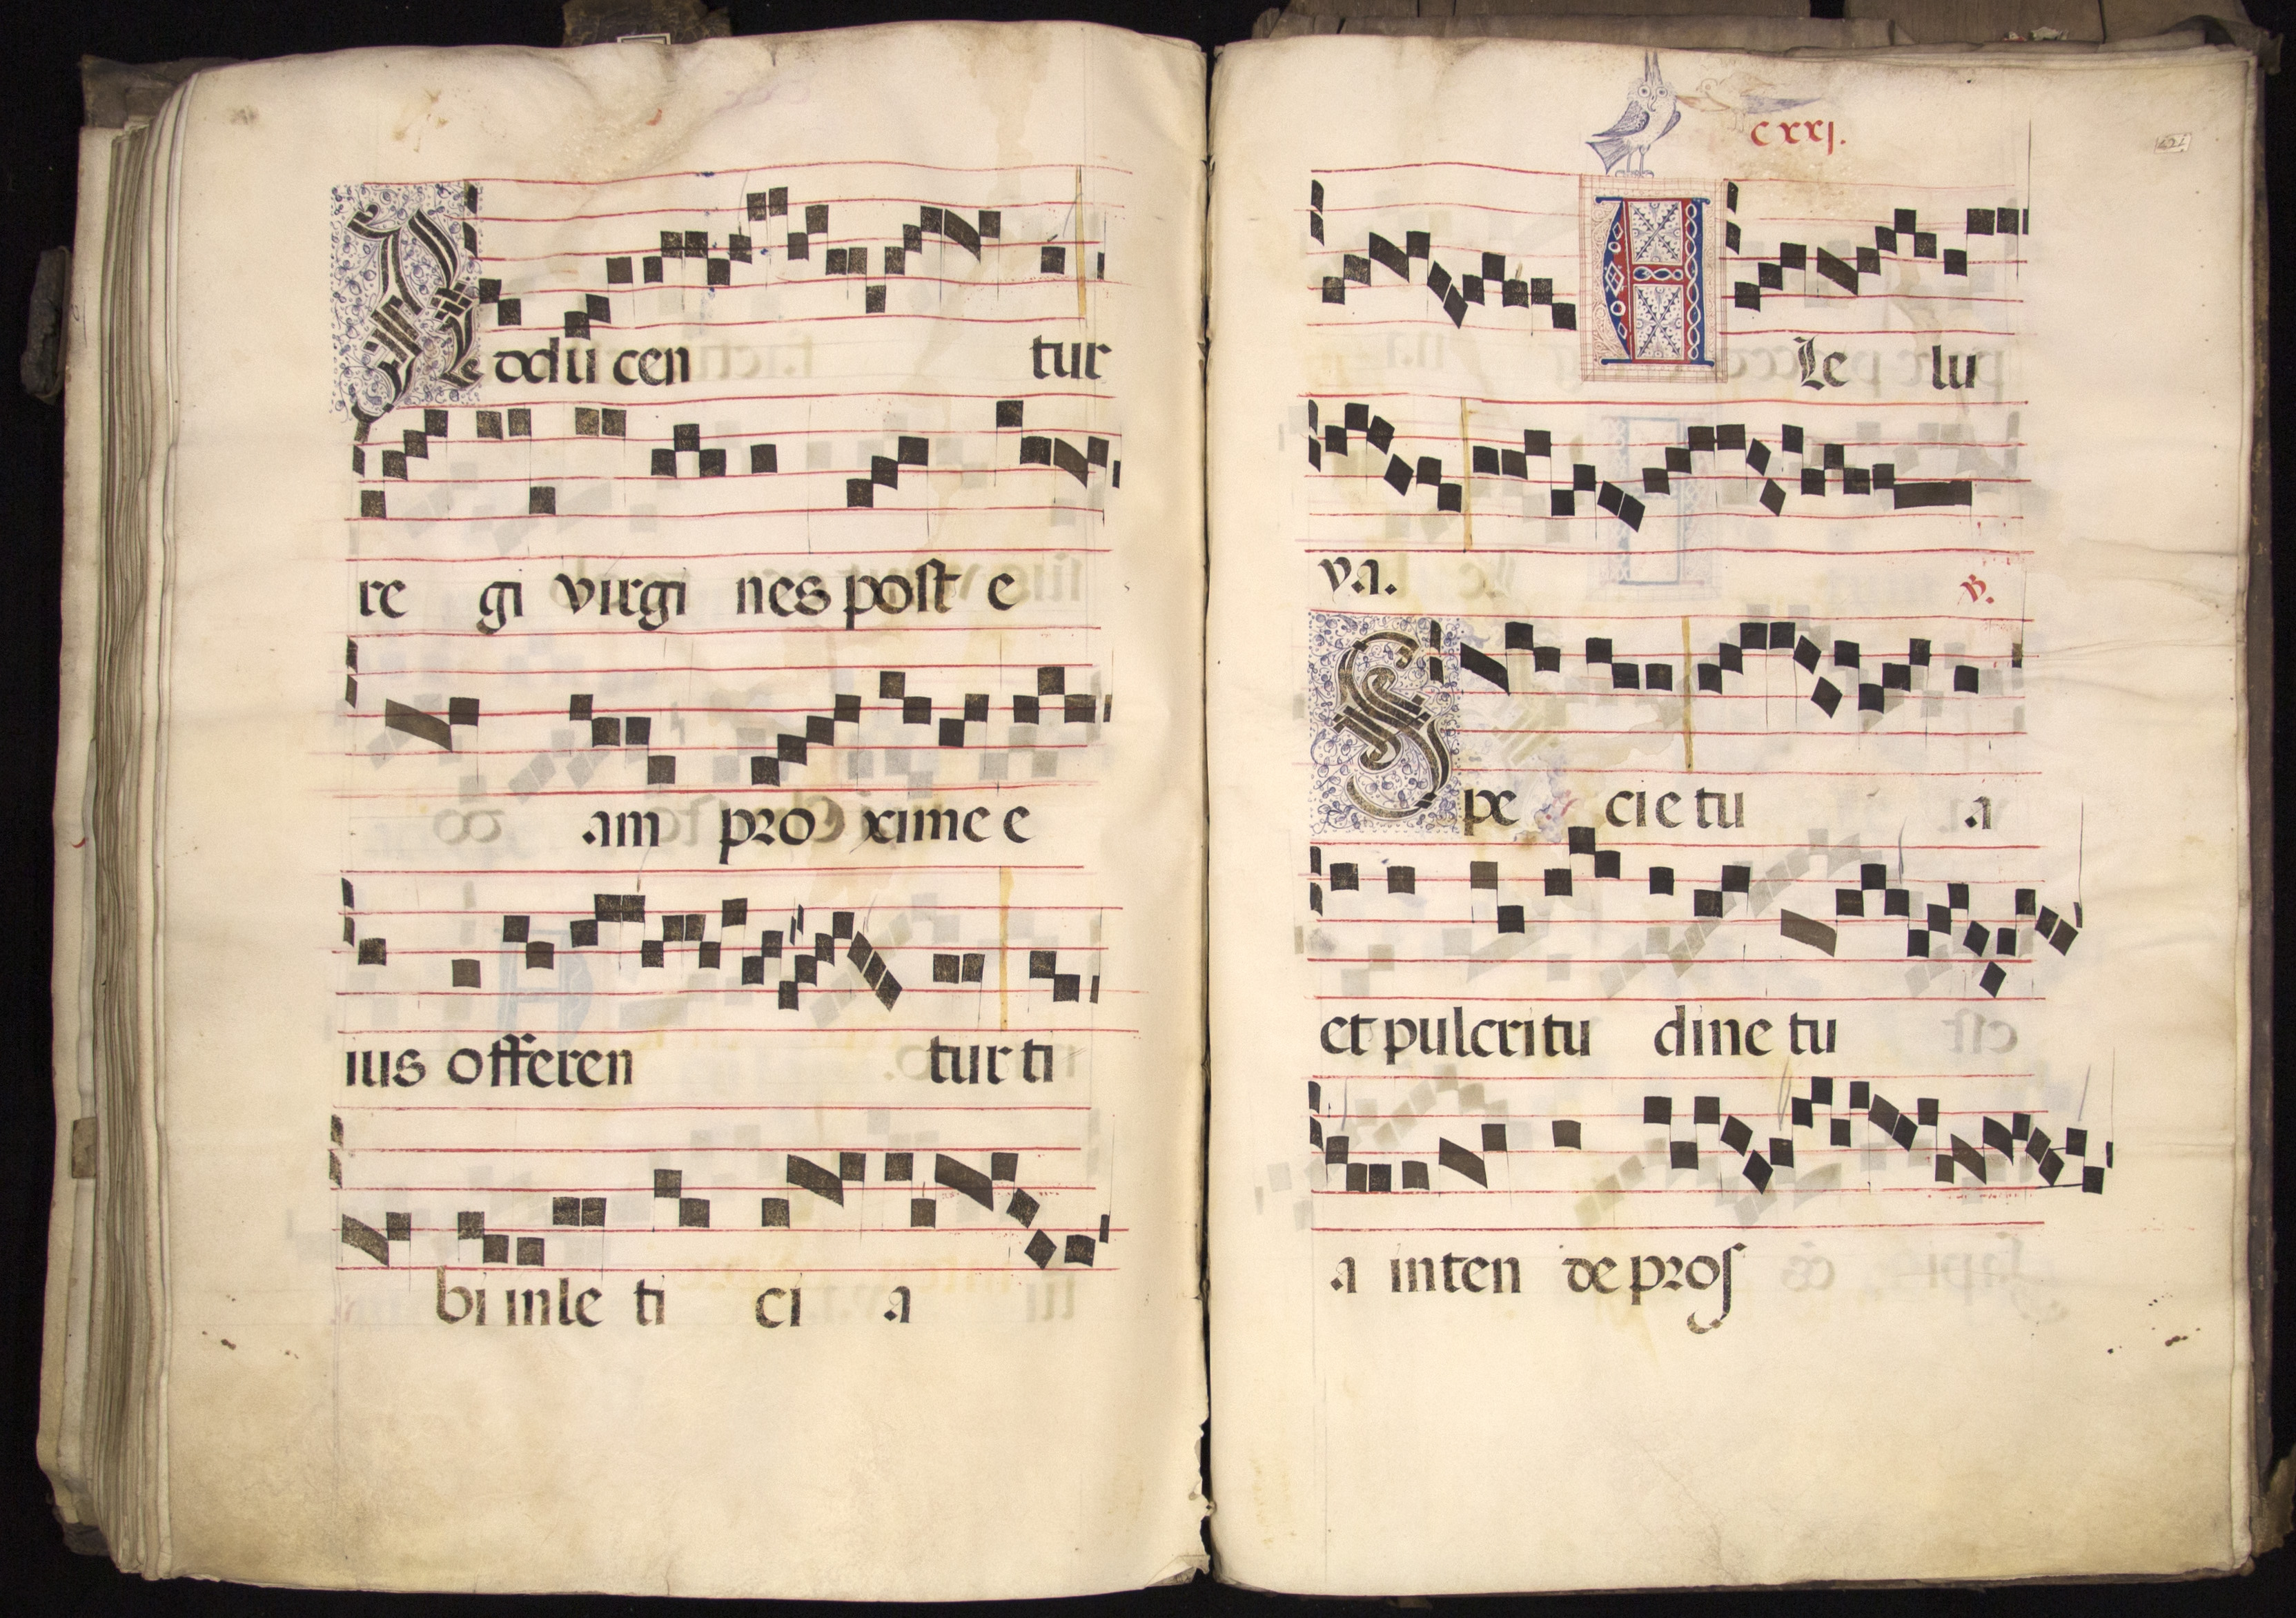 Adducen tur
re gi virgi nes post e
am pro xime e
ius offeren tur ti
bi in le ti ci a
cxxj.
A Le lu
ya. V.
Spe cie tu a
et pulcritu dine tu
a inten de pros